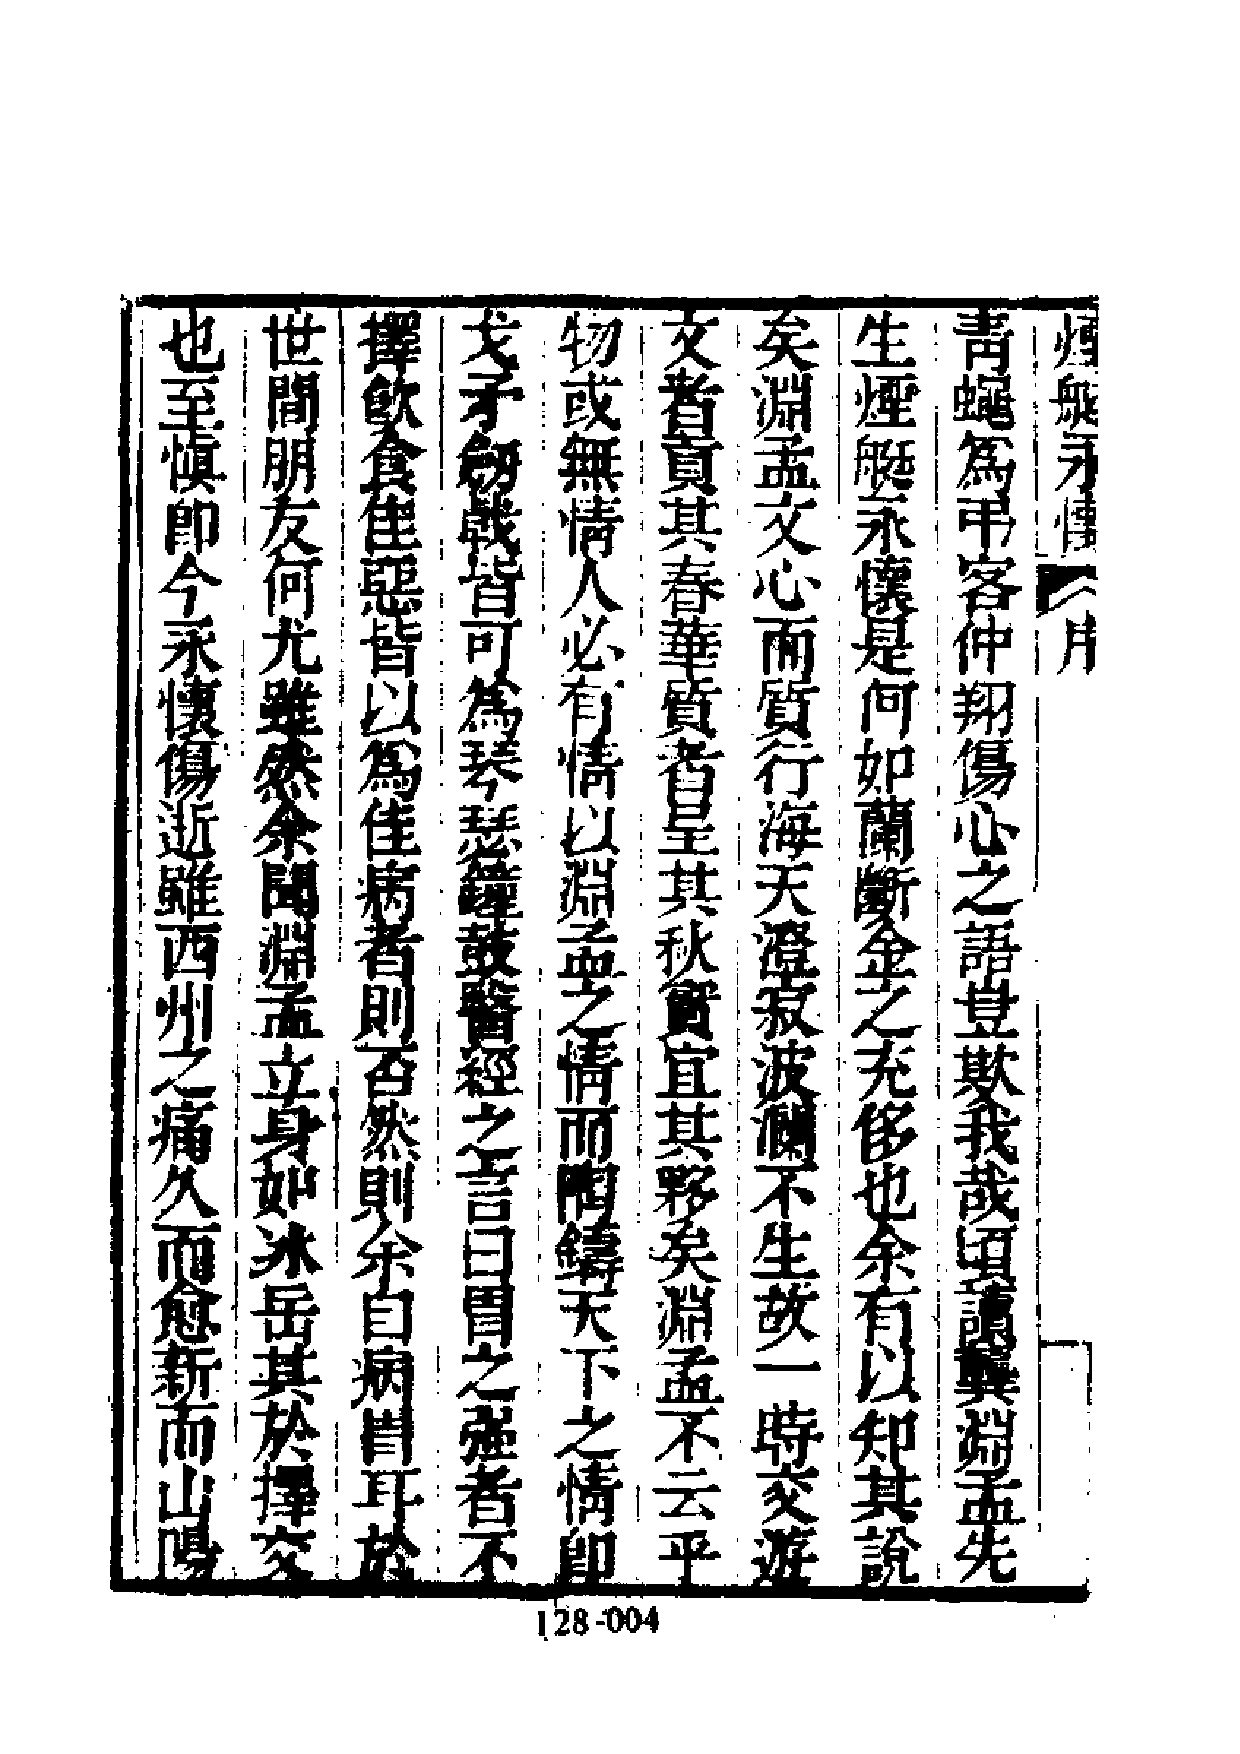 煙艇永懷 序
青蠅爲弔客仲翔傷心之語豈欺我哉頃讀龔淵孟先
生煙艇永懷是何如蘭斷金之充侈也余有以知其說
矣淵孟文心而質行海天澄寂波瀾不生故一時交遊
文者貢其春華質者呈其秋實宜其夥矣淵孟不云乎
物或無情人必有情以淵孟之情而陶鑄天下之情卽
戈矛劒戟皆可爲琴瑟鐘鼓醫經之言曰胃之强者不
擇飮食佳惡皆以爲佳病者則否然則余自病胃耳於
世間朋友何尤雖然余聞淵孟立身如冰岳其於擇交
也至愼卽今永懷傷逝雖西州之痛久而愈新而山陽
128-004